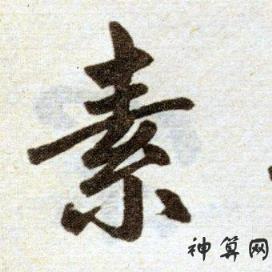 素
神算网